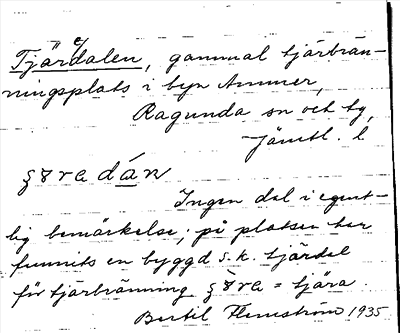 Tjärdalen, gammal tjärbrän-
ningsplats i byn Ammer,
Ragunda sn och tg,
Jämtl. l
dán
Ingen dal i egent-
lig bemärkelse; på platsen har
funnits en byggd s.k. tjärdal
för tjärbränning = tjära.
Bertil Flemström 1935